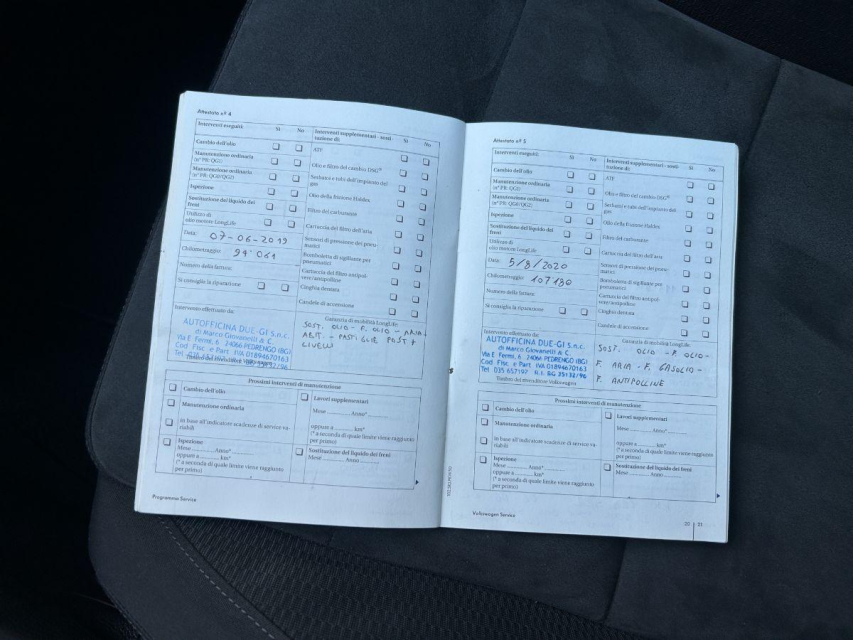 Attestato nº 4
Interventi eseguiti: Sì No
Cambio dell'olio
Manutenzione ordinaria
(nº PR: QG1)
Manutenzione ordinaria
(nº PR: QG0/QG2)
Ispezione
Sostituzione del liquido dei
freni
Utilizzo di
olio motore LongLife
Data: 07-06-2019
Chilometraggio:
Numero della fattura:
Si consiglia la riparazione
Intervento effettuato da:
AUTOFFICINA DUE-GI S.n.c.
di Marco Giovanelli & C.
Via E. Fermi, 6 24066 PEDRENGO (BG)
Cod. Fisc. e Part. IVA 01894670163
Interventi supplementari - sosti-
tuzione di: Sì No
ATF
Olio e filtro del cambio DSG®
Serbatoi e tubi dell'impianto del
gas
Olio della frizione Haldex
Filtro del carburante
Cartuccia del filtro dell'aria
Sensori di pressione dei pneu-
matici
Bomboletta di sigillante per
pneumatici
Cartuccia del filtro antipol-
vere/antipolline
Cinghia dentata
Candele di accensione
Garanzia di mobilità LongLife:
SOST. OLIO - F. OLIO - ARIA -
ABIT. - PASTIGLIE POST +
LIVELLI
Prossimi interventi di manutenzione
Cambio dell'olio
Manutenzione ordinaria
in base all'indicatore scadenze di service va-
riabili
Ispezione
Mese Anno*
oppure a km*
(* a seconda di quale limite viene raggiunto
per primo)
Lavori supplementari
Mese Anno*
oppure a km*
(* a seconda di quale limite viene raggiunto
per primo)
Sostituzione del liquido dei freni
Mese Anno
Programma Service
Attestato nº 5
Interventi eseguiti: Sì No
Cambio dell'olio
Manutenzione ordinaria
(nº PR: QG1)
Manutenzione ordinaria
(nº PR: QG0/QG2)
Ispezione
Sostituzione del liquido dei
freni
Utilizzo di
olio motore LongLife
Data: 5/8/2020
Chilometraggio: 107180
Numero della fattura:
Si consiglia la riparazione
Intervento effettuato da:
AUTOFFICINA DUE-GI S.n.c.
di Marco Giovanelli & C.
Via E. Fermi, 6 24066 PEDRENGO (BG)
Cod. Fisc. e Part. IVA 01894670163
Tel. 035 657197 R.I. BG 35132/96
Timbro del rivenditore Volkswagen
Interventi supplementari - sosti-
tuzione di: Sì No
ATF
Olio e filtro del cambio DSG®
Serbatoi e tubi dell'impianto del
gas
Olio della frizione Haldex
Filtro del carburante
Cartuccia del filtro dell'aria
Sensori di pressione dei pneu-
matici
Bomboletta di sigillante per
pneumatici
Cartuccia del filtro antipol-
vere/antipolline
Cinghia dentata
Candele di accensione
Garanzia di mobilità LongLife:
SOST. OLIO - F. OLIO -
F. ARIA - F. GASOLIO -
F. ANTIPOLLINE
Prossimi interventi di manutenzione
Cambio dell'olio
Manutenzione ordinaria
in base all'indicatore scadenze di service va-
riabili
Ispezione
Mese Anno*
oppure a km*
(* a seconda di quale limite viene raggiunto
per primo)
Lavori supplementari
Mese Anno*
oppure a km*
(* a seconda di quale limite viene raggiunto
per primo)
Sostituzione del liquido dei freni
Mese Anno
Volkswagen Service
20 | 21